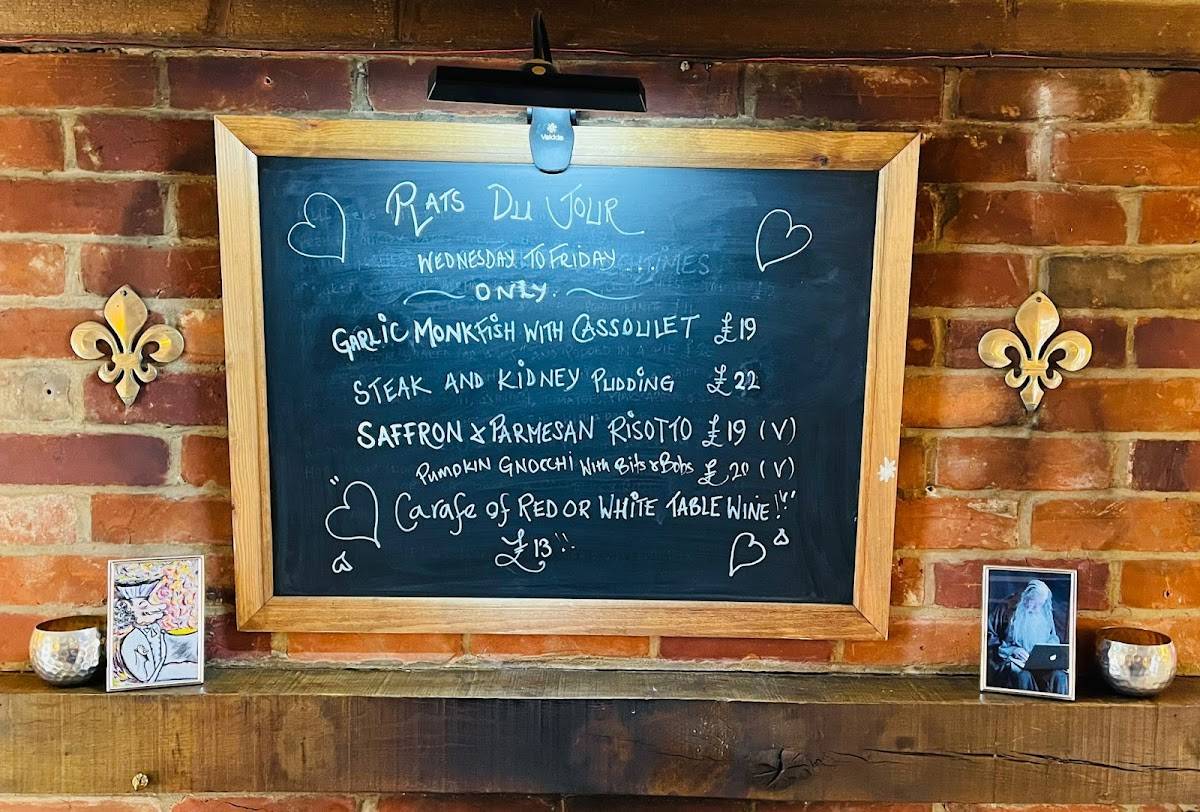 Vekkia
PLATS DU JOUR
WEDNESDAY TO FRIDAY ...
ONLY.
GARLIC MONKFISH WITH CASSOULET £19
STEAK AND KIDNEY PUDDING £22
SAFFRON & PARMESAN RISOTTO £19 (V)
PUMPKIN GNOCCHI With Bits & Bobs £20 (V)
Carafe of RED OR WHITE TABLE WINE!!
£13!!